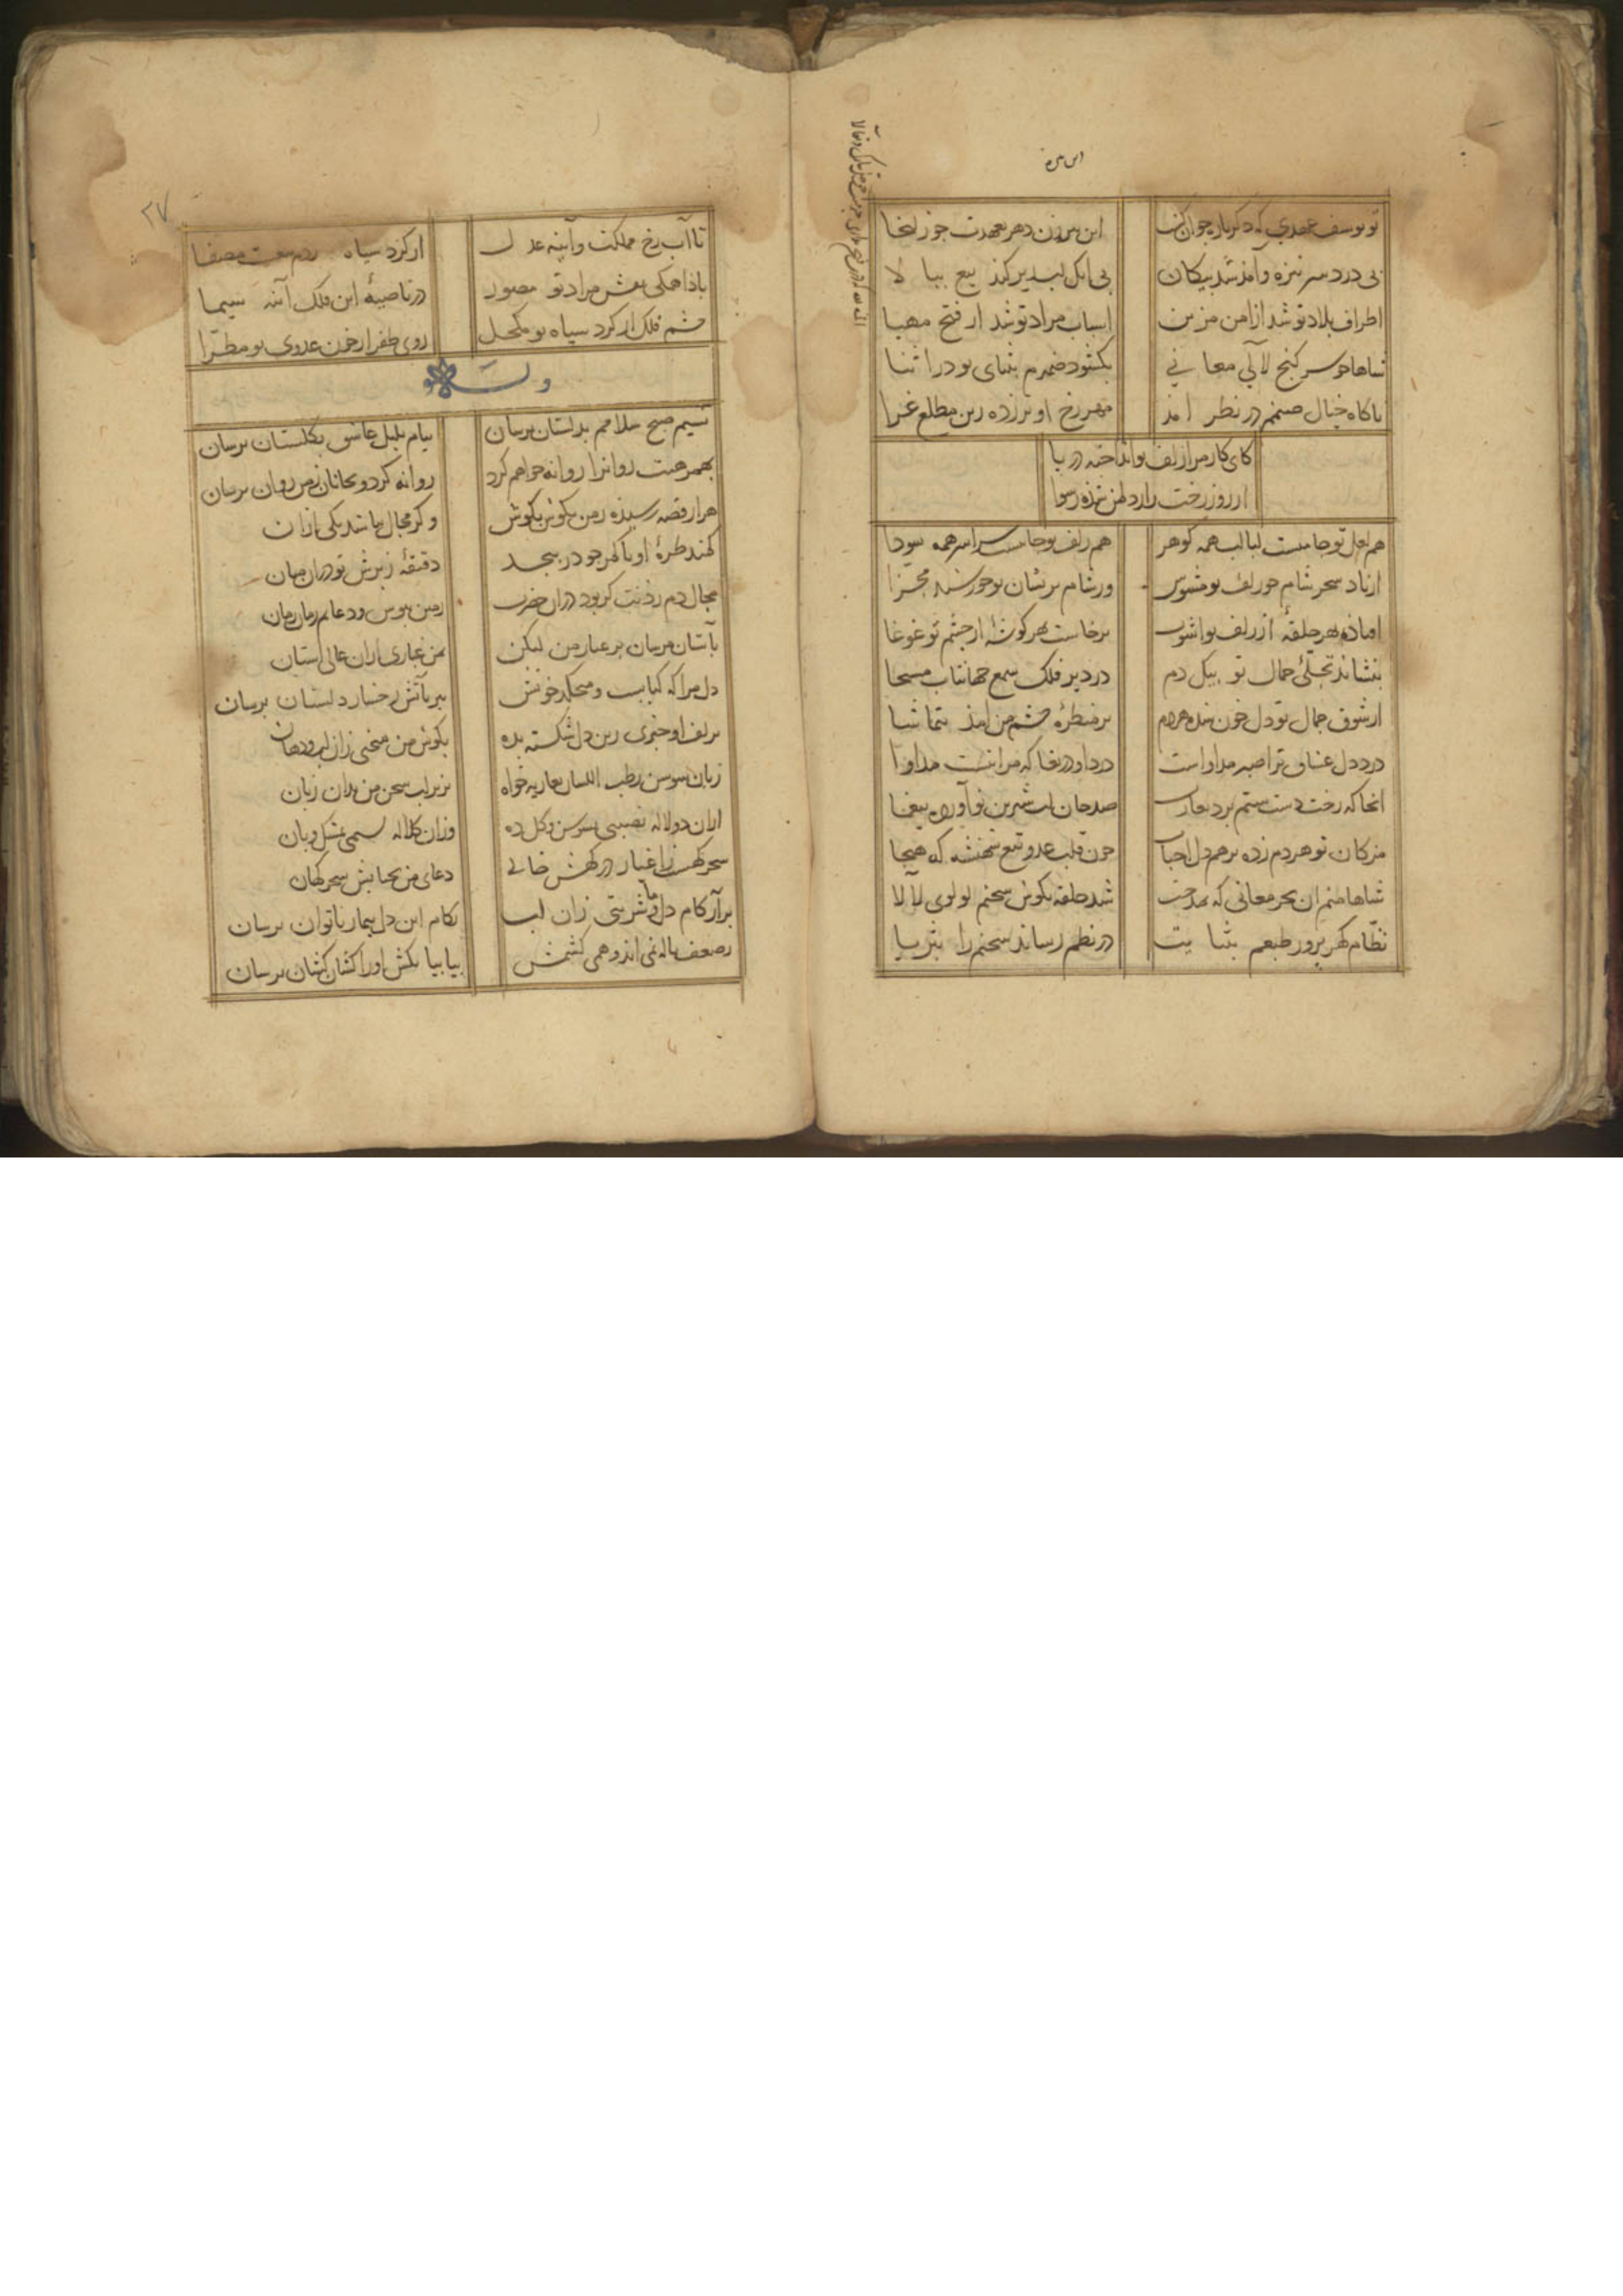 تو یوسف عهدی که دکرباره جوان کشت این پیرزن دهر بعهدت جو زلیخا
بی درد سر نیزه و آمد شد پیکان بی انک لب تیر کند تیغ ببا لا
اطراف بلاد تو شد از امن مزین اسباب مراد تو شد از فتح مهیا
شاها جو سر کنج لآلی معانی بکشود ضمیرم بثنای تو در اثنا
ناکاه خیال صنمم در نظر امد مهر رخ او برزده زین مطلع غرا
کای کار مرا زلف تو انداخته در پا
از روز رخت راز دل من شده رسوا
هم لعل تو جامیست لبالب همه کوهر هم زلف تو جامیست سراسر همه سودا
از باد سحر شام جو زلف تو مشوش ور شام پریشان تو خورشید مجزا
افتاده بهر حلقه از زلف تو اشوب برخاست بهر کوشه از چشم تو غوغا
بنشاند تجلّی جمال تو بیکل دم در دیر فلک شمع جهانتاب مسیحا
از شوق جمال تو دل خون شده هردم بر منظره چشم من امد بتماشا
درد دل عشاق ترا صبر مداواست درد او دریغا که مرا نیست مداوا
انجا که رخت دست ستم برد بغارت صد جان لب شیرین تو آورده بیغما
مزکان تو هردم زده برهم دل احباب جون قلب عدو تیغ شهنشه که هیجا
شاها منم ان بحر معانی که بمدحت شد حلقه بکوش سخنم لولوی لالا
نظّام کهر پرور طبعم بثنایت در نظم رساند سخنم را بثریا
تا آب رخ مملکت و آینه عدل از کرد سپاه مصفا
بادا همکی نقش مراد تو مصور در ناصیهٔ این فلک آینه سیما
چشم فلک از کرد سپاه تو مکحل روی ظفر از خون عدوی تو مطرّا
وله
نسیم صبح سلامم بدلستان برسان پیام بلبل عاشق بکلستان برسان
بهمرهیت روانرا روانه خواهم کرد روانه کرد و بجانان ز من روان برسان
هزار قصه رسیده ز من بکوش بکوش وکر مجال باشد یکی از ان
کمند طره او با کمر جو در پیچد دقیقهٔ ز برش تو دران میان
مجال دم زدنت کر بود دران حضرت زمین ببوس و دعایم زمان زمان
بآستان مرسان پر غبار من لیکن بمن غباری ازان عالی استان
دل مرا که کبابست و میچکد خونش ببر بآتش رخسار دلستان برسان
بزلف او خبری زین دل شکسته بده بکوش من سخنی زان لب و دهان
زبان سوسن رطب اللسان بعاریه خواه بزیر لب سخن من بدان زبان
ازان دو لاله نصیبی بسوسن و کل ده وزان کلاله نسیمی بمشک و بان
سحرکهست زاغیار درکهش خالی دعای من بجنابش سحرکهان
برآر کام دل و شربتی زان لب بکام این دل بیمار ناتوان برسان
ز ضعف ناله نمی اند و همی کشمش بیا بیا بکش او را کشان کشان برسان
۲۷